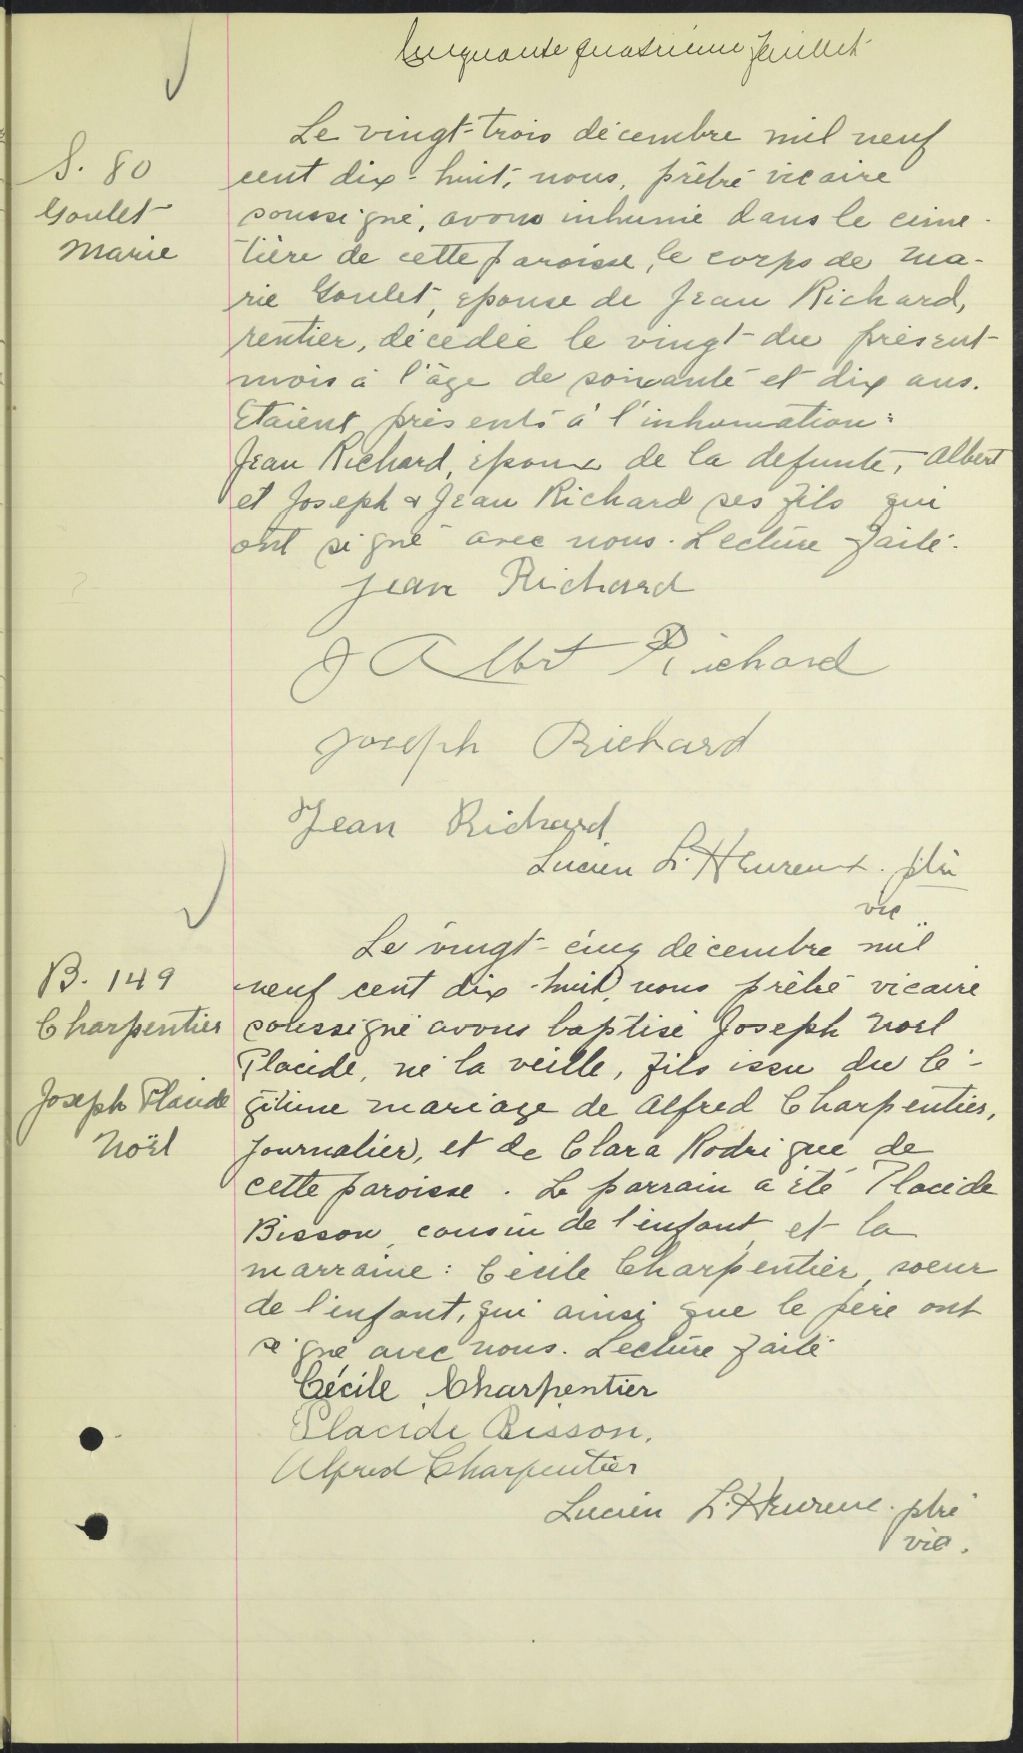 Cinquante quatrième feuillet
S. 80
Goulet
Marie
Le vingt-trois décembre mil neuf
cent dix-huit, nous, prêtre vicaire
soussigné, avons inhumé dans le cime-
tière de cette paroisse, le corps de Ma-
rie Goulet, épouse de Jean Richard,
rentier, décédée le vingt du présent
mois à l'âge de soixante et dix ans.
Etaient présents à l'inhumation:
Jean Richard, époux de la defunte, Albert
et Joseph & Jean Richard ses fils qui
ont signé avec nous. Lecture faite.
Jean Richard
J Albrt Richard
Joseph Richard
Jean Richard
Lucien L'Heureux. ptre
vic
B. 149
Charpentier
Joseph Placide
Noël
Le vingt-cinq décembre mil
neuf cent dix-huit, nous prêtre vicaire
soussigné avons baptisé Joseph Noël
Placide, né la veille, fils issu du lé-
gitime mariage de Alfred Charpentier,
journalier, et de Clara Rodrigue de
cette paroisse. Le parrain a été Placide
Bisson, cousin de l'enfant, et la
marraine: Cécile Charpentier, soeur
de l'enfant, qui ainsi que le père ont
signé avec nous. Lecture faite
Cécile Charpentier
Placide Bisson.
Alfred Charpentier
Lucien L'Heureux. ptre
vic.